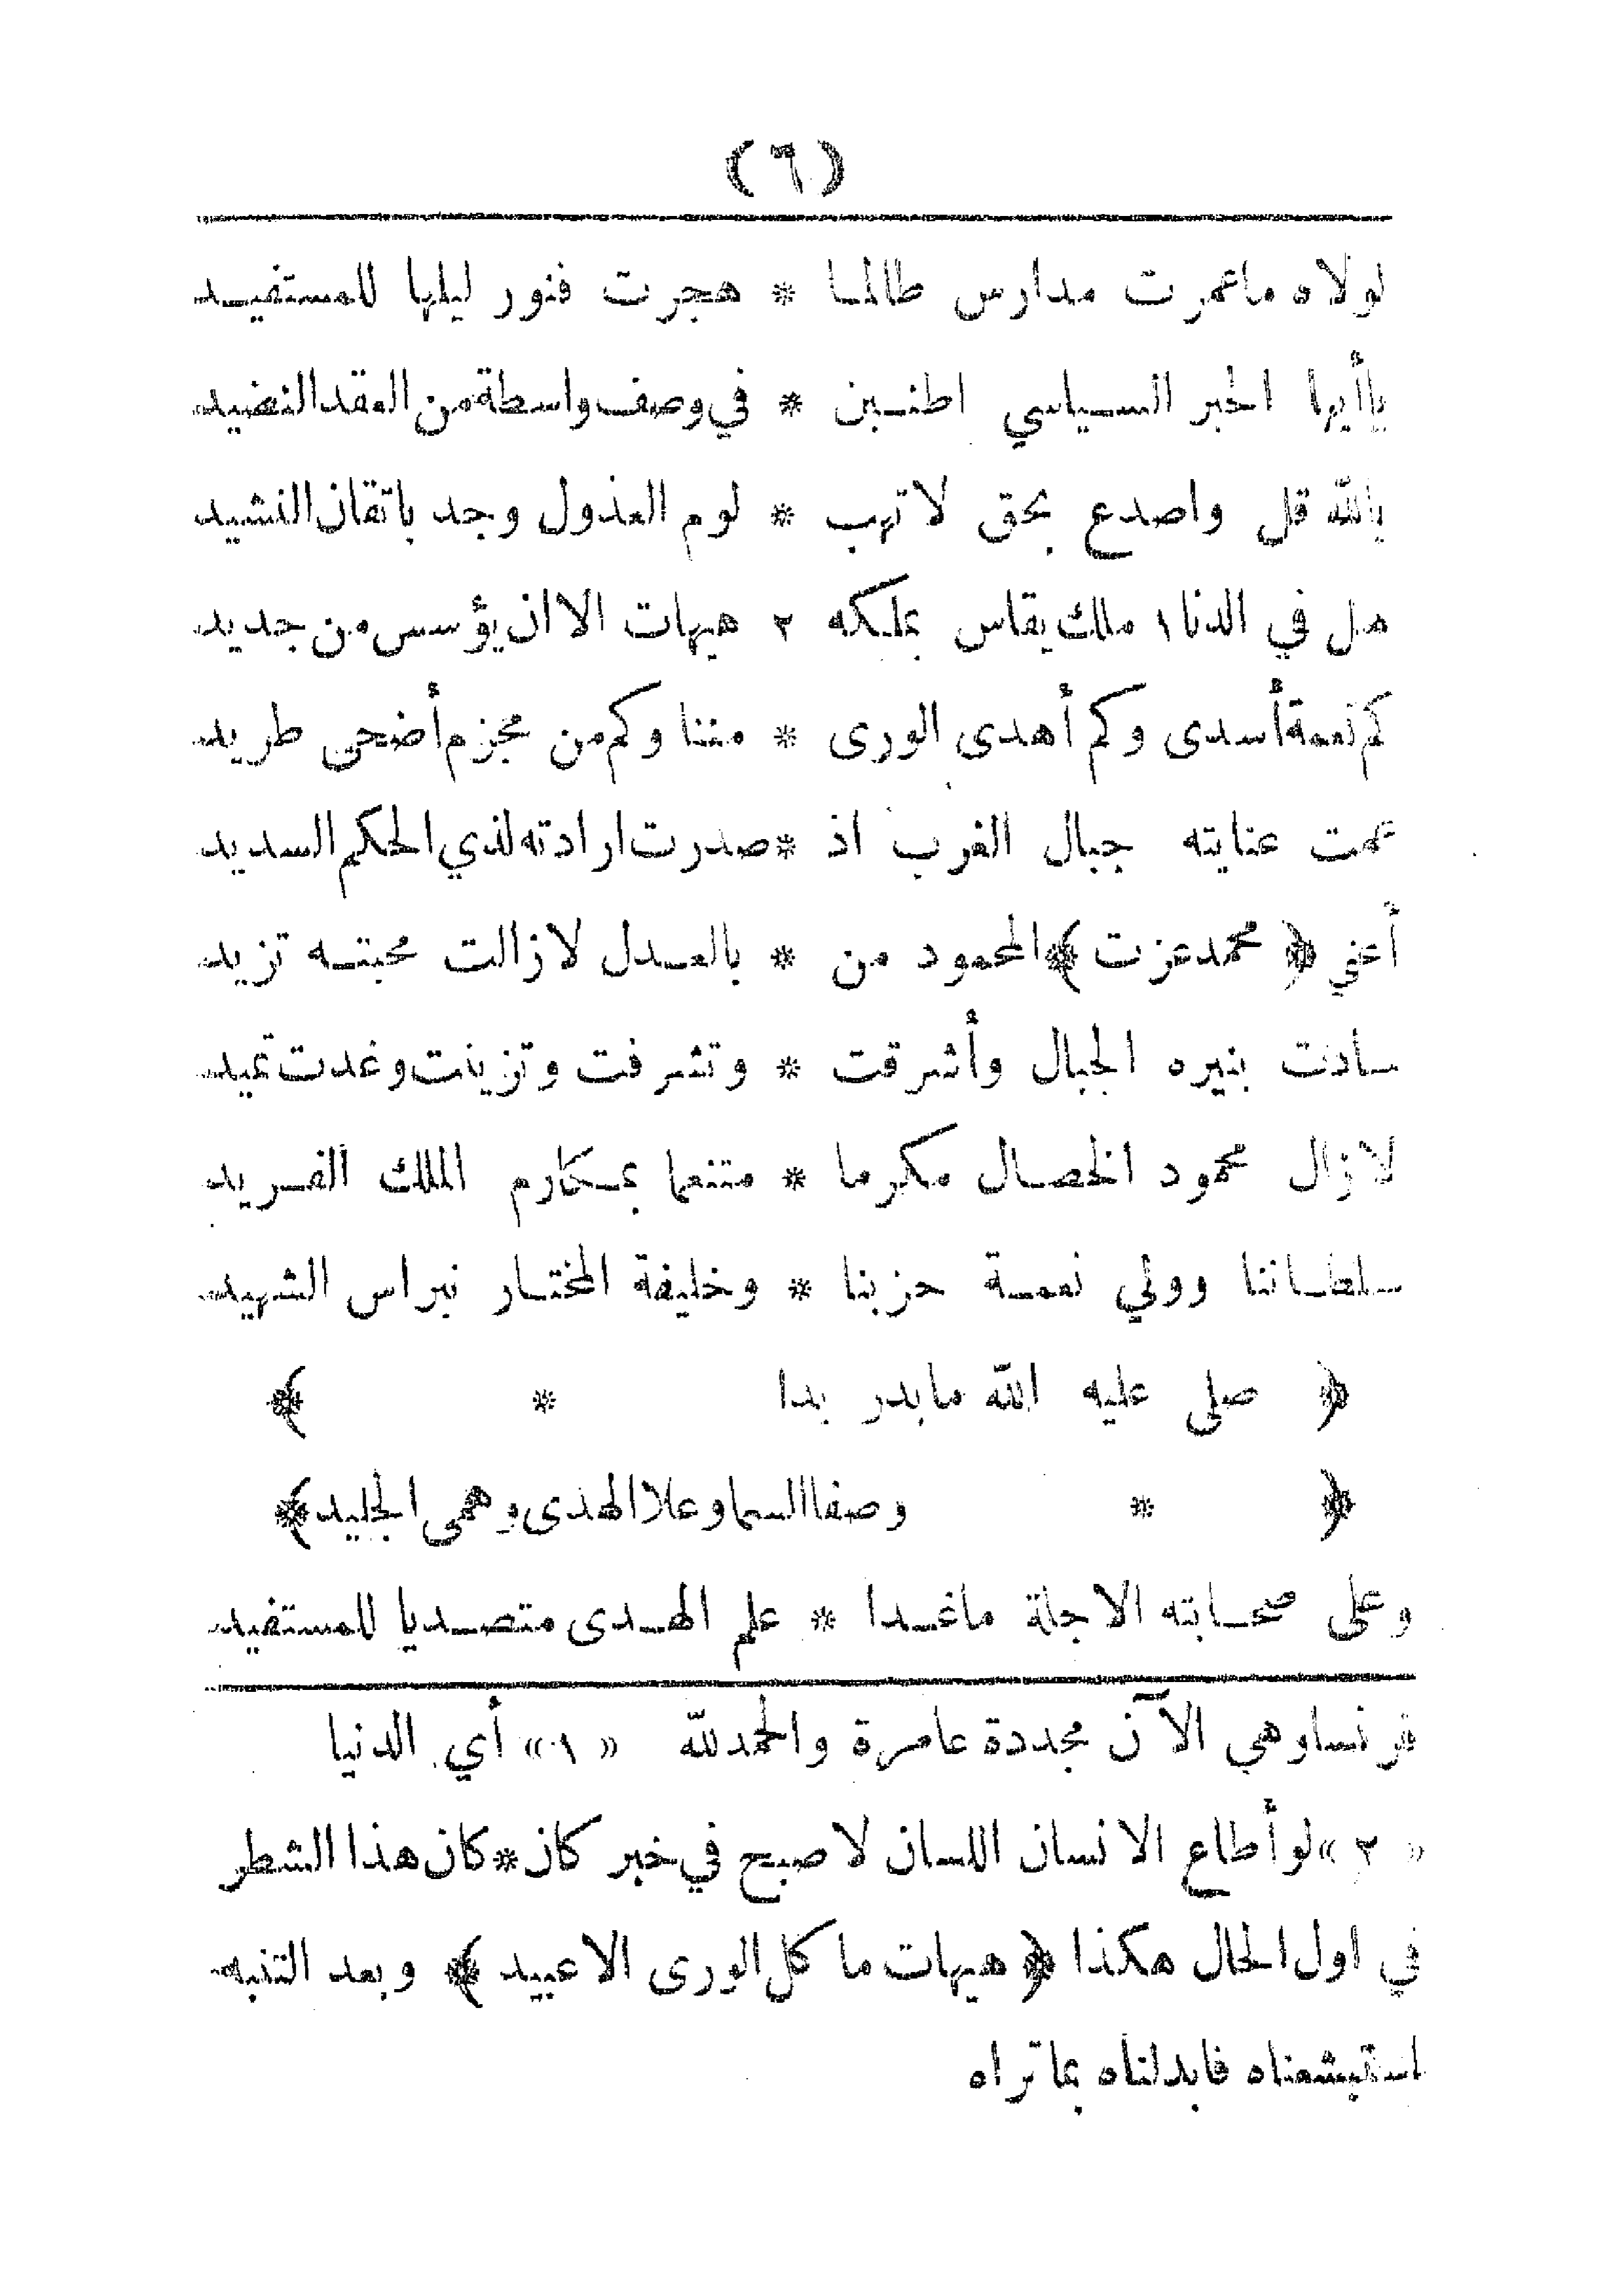 (٦)
لولاه ماعمرت مدارس طالما * هجرت فنور ليلها للمستفيد
ياأيها الحبر السياسي اطنبن * في وصف واسطة من العقد النضيد
بالله قل واصدع بحق لاتهب * لوم العذول وجد باتقان النشيد
هل في الدنا ١ ملك يقاس بملكه ٢ هيهات الا ان يؤسس من جديد
كم نعمة أسدى وكم أهدى الورى * مننا وكم من مجرم أضحى طريد
عمت عنايته جبال الغرب اذ * صدرت ارادته لذي الحكم السديد
أعني ﴿ محمد عزت ﴾ المحمود من * بالعدل لازالت محبته تزيد
سادت بنيره الجبال وأشرقت * وتشرفت وتزينت وغدت تميد
لازال محمود الخصال مكرما * متنعما بمكارم الملك الفريد
سلطاننا وولي نعمة حزبنا * وخليفة المختار نبراس الشهيد
﴿ صلى عليه الله مابدر بدا * ﴾
﴿ * وصفا السما وعلا الهدى وهمى الجليد ﴾
وعلى صحابته الاجلة ماغدا * علم الهدى متصديا للمستفيد
فرنسا وهي الآن مجددة عامرة والحمدلله «١» أي الدنيا
«٢» لو أطاع الانسان اللسان لاصبح في خبر كان * كان هذا الشطر
في اول الحال هكذا ﴿ هيهات ما كل الورى الا عبيد ﴾ وبعد التنبه
استبشعناه فابدلناه بما تراه